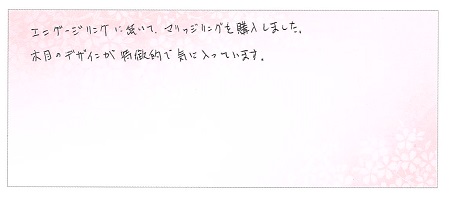 エンゲージリングに続いて、マリッジリングを購入しました。
木目のデザインが特徴的で気に入っています。